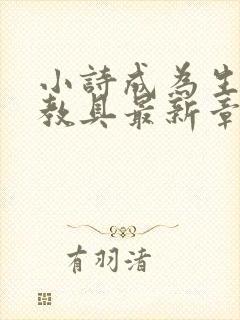 小詩成為生
教具最新章
有羽渚